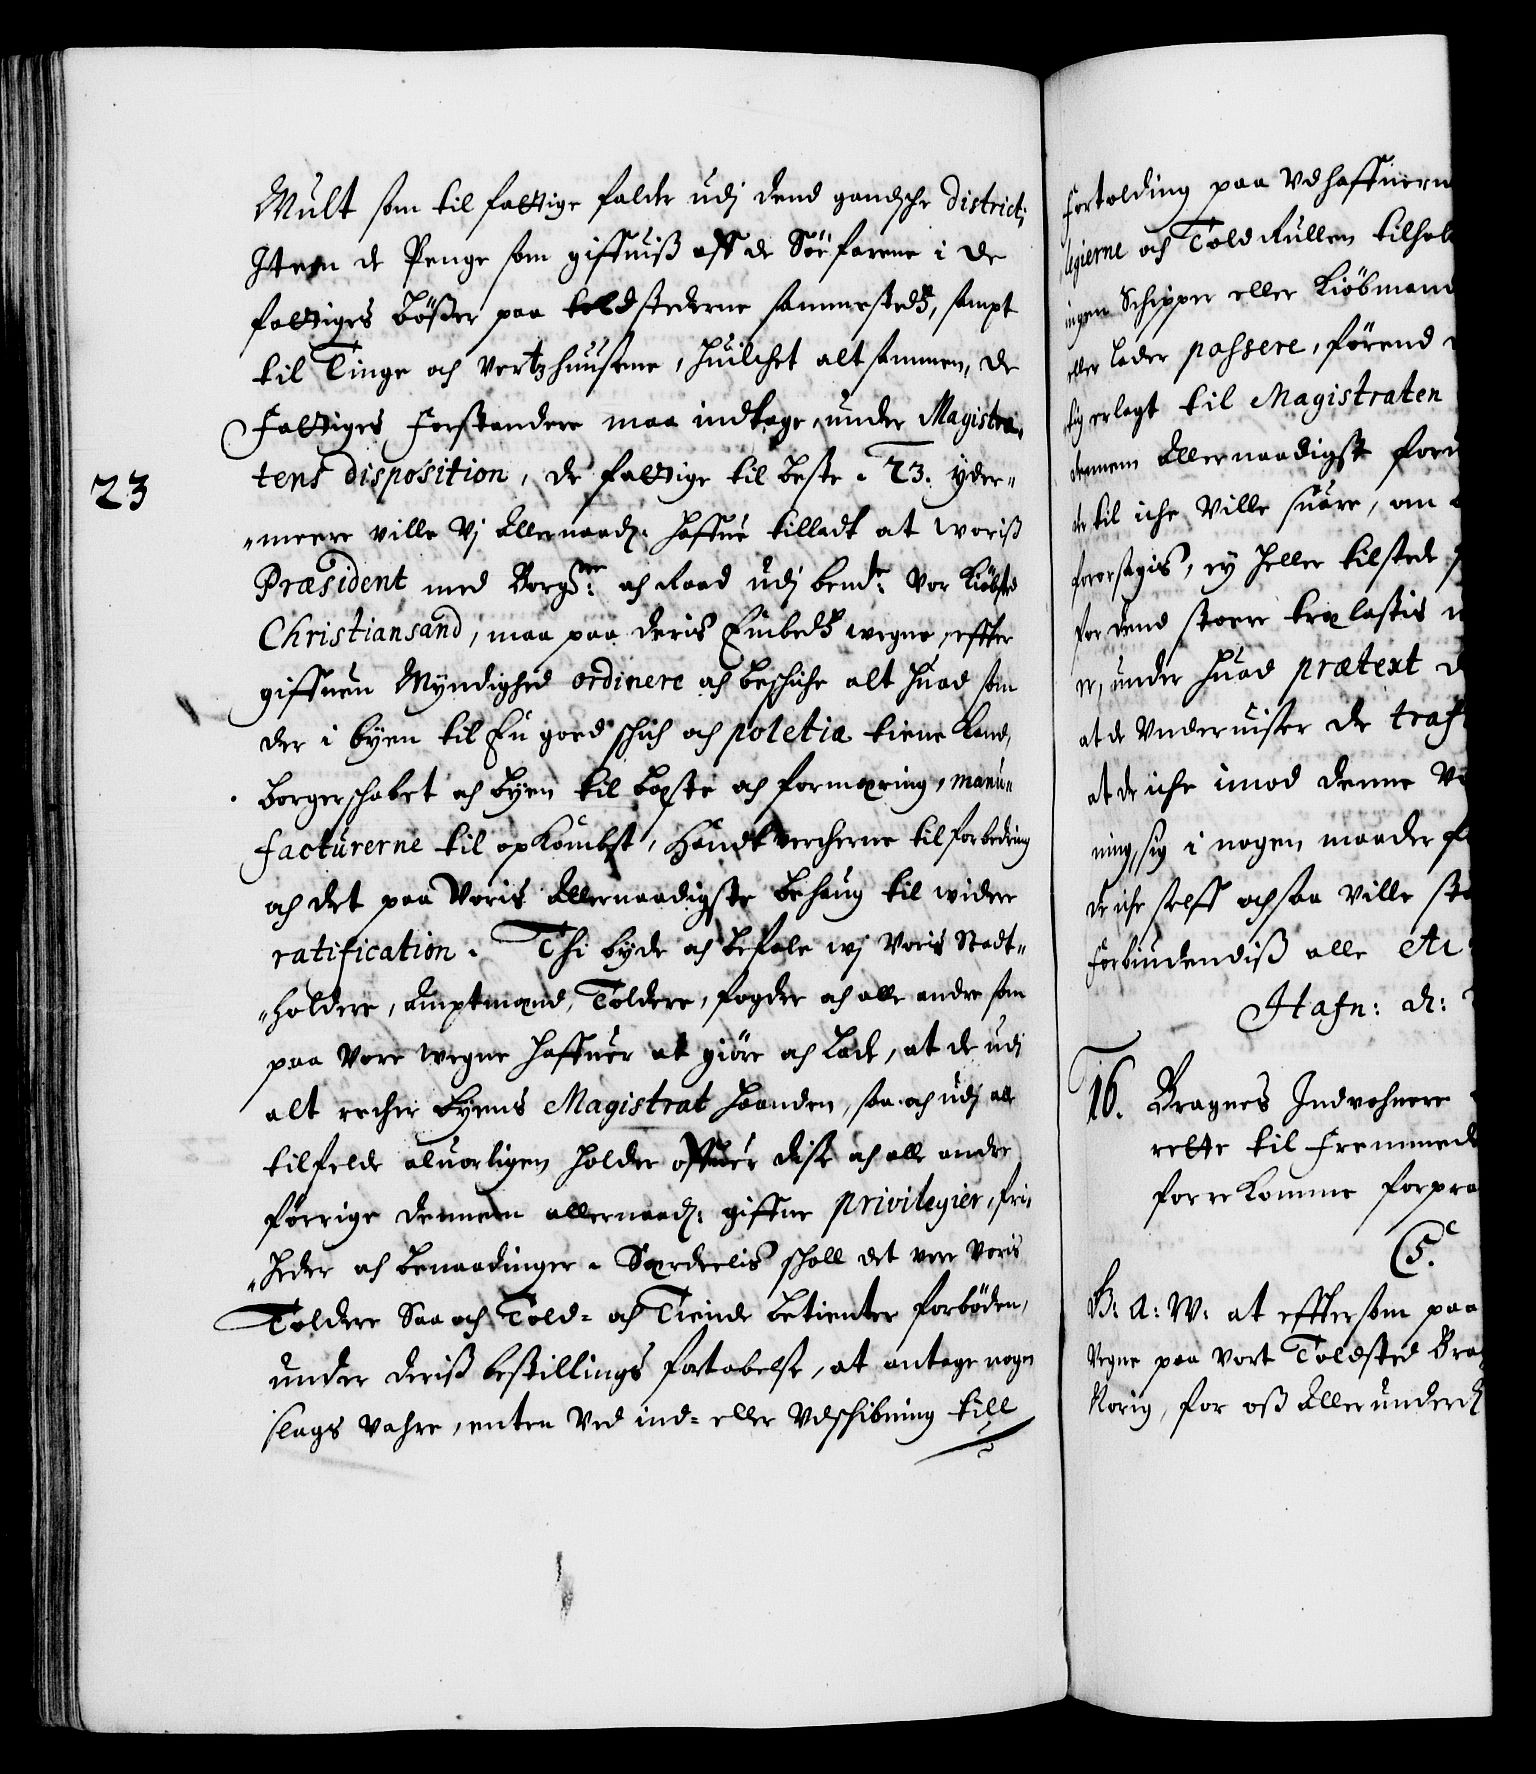 Mult som til fattige falde udj dend gandsche district;
Item de Penge som giffuiß aff de Söefarene i de
fattiges bößer paa toldstederne sammestedtz, sampt
til Tinge och Vertzhuusene, huilchet alt sammen, de
Fattiges Forstandere maa indtage, under Magistra-
tens disposition, de fattige til beste. 23. yder-
23
-meere ville Vj Allernaad: haffue tilladt at woriß
Præsident med Borg: och Raad udj bemte: Vor Kiöbsted
Christiansand, maa paa deris Embedtz wegne, effter
giffuen Myndighed ordinere och beschiche alt huad som
der i byen til En goed schich och poletia tiene kand,
borgerschabet och byen til beste och formering, manu-
facturerne til opkombst, Handtvercherne til forbedring
och det paa Voris Allernaadigste behaug til widere
ratification. Thi byde och befale wj Voris Stadt-
-holdere, Amptmænd, Toldere, fogder och alle andre som
paa Vore wegne haffuer at giöre och lade, at de udj
alt recher byens Magistrat haanden, saa och udj alle
tilfelde aluorligen holder offuer disse och alle andre
forrige dennem allernaad: giffne privilegier, fri-
-heder och benaadinger. Særdeelis schall det vere Voris
Toldere Saa och Told- och Tiende betienter forböden,
under deriß bestillings fortabelse, at antage nogen
slags vahre, enten Ved ind- eller Vdschibning till
Fortolding paa Vdhaffnern
ligierne och Told Rullen tilhol
ingen Schipper eller Kiöbmand
eller lader passere, förend
lig erlagt til Magistraten
dennem Allernaadigst forun
der til iche Ville suare, om
foraarsagis, ey heller tilstede
for dend store
er, under huad prætext
at de Underuiser de traf
at de iche imod denne Vo
ning, sig i nogen maader
de iche selff och saa Ville sta
Forbiudendiß alle Et
Hafn: d:
16. Bragnes Indvohnere
rette til Fremmede
forrekomme forpra
C5.
G: A: W: at efftersom paa
Vegne paa Vort Toldsted Brag
Norig, for oß Allerunderd